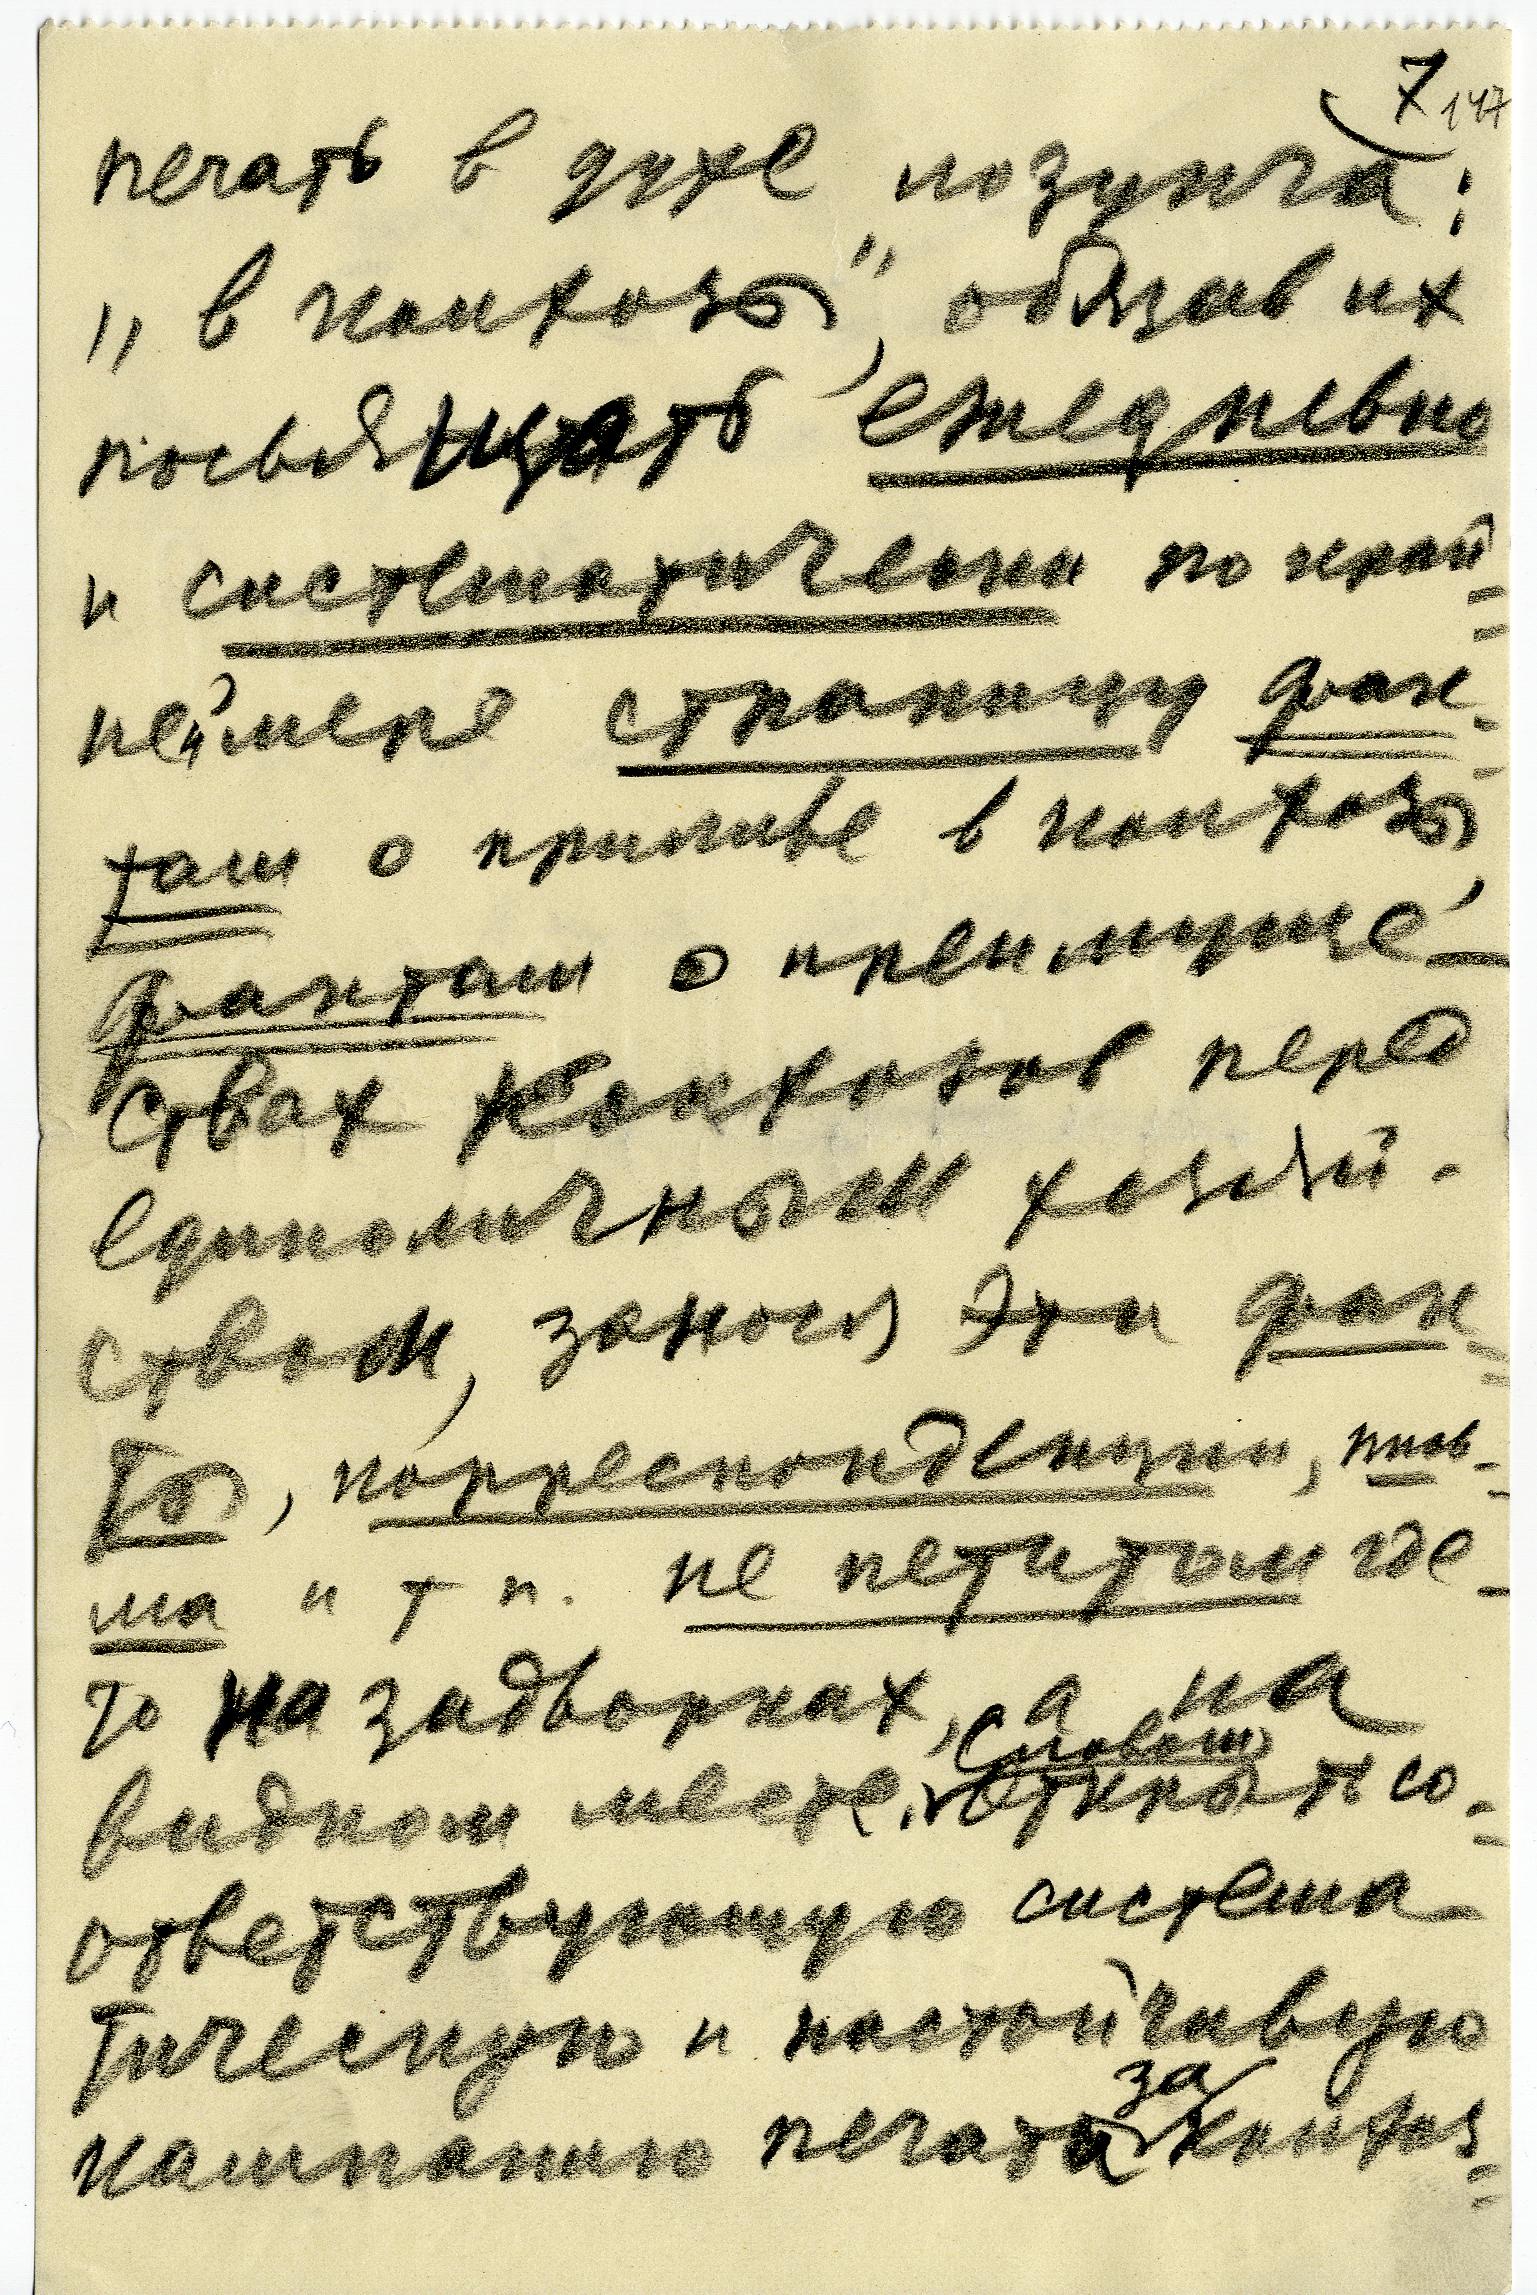 7 147
печать в духе лозунга:
„в колхозы", обязав их
посвящать ежедневно
и систематически по край-
ней мере страницу фак-
там о приливе в колхозы,
фактам о преимуще-
ствах колхозов перед
единоличным хозяй-
ством, занося эти фак-
ты, корреспонденции, пись-
ма и т п. не петитом где-
то на задворках, а на
видном месте. Словом,
открыть со-
ответствующую система-
тическую и настойчивую
кампанию печати за колхоз-